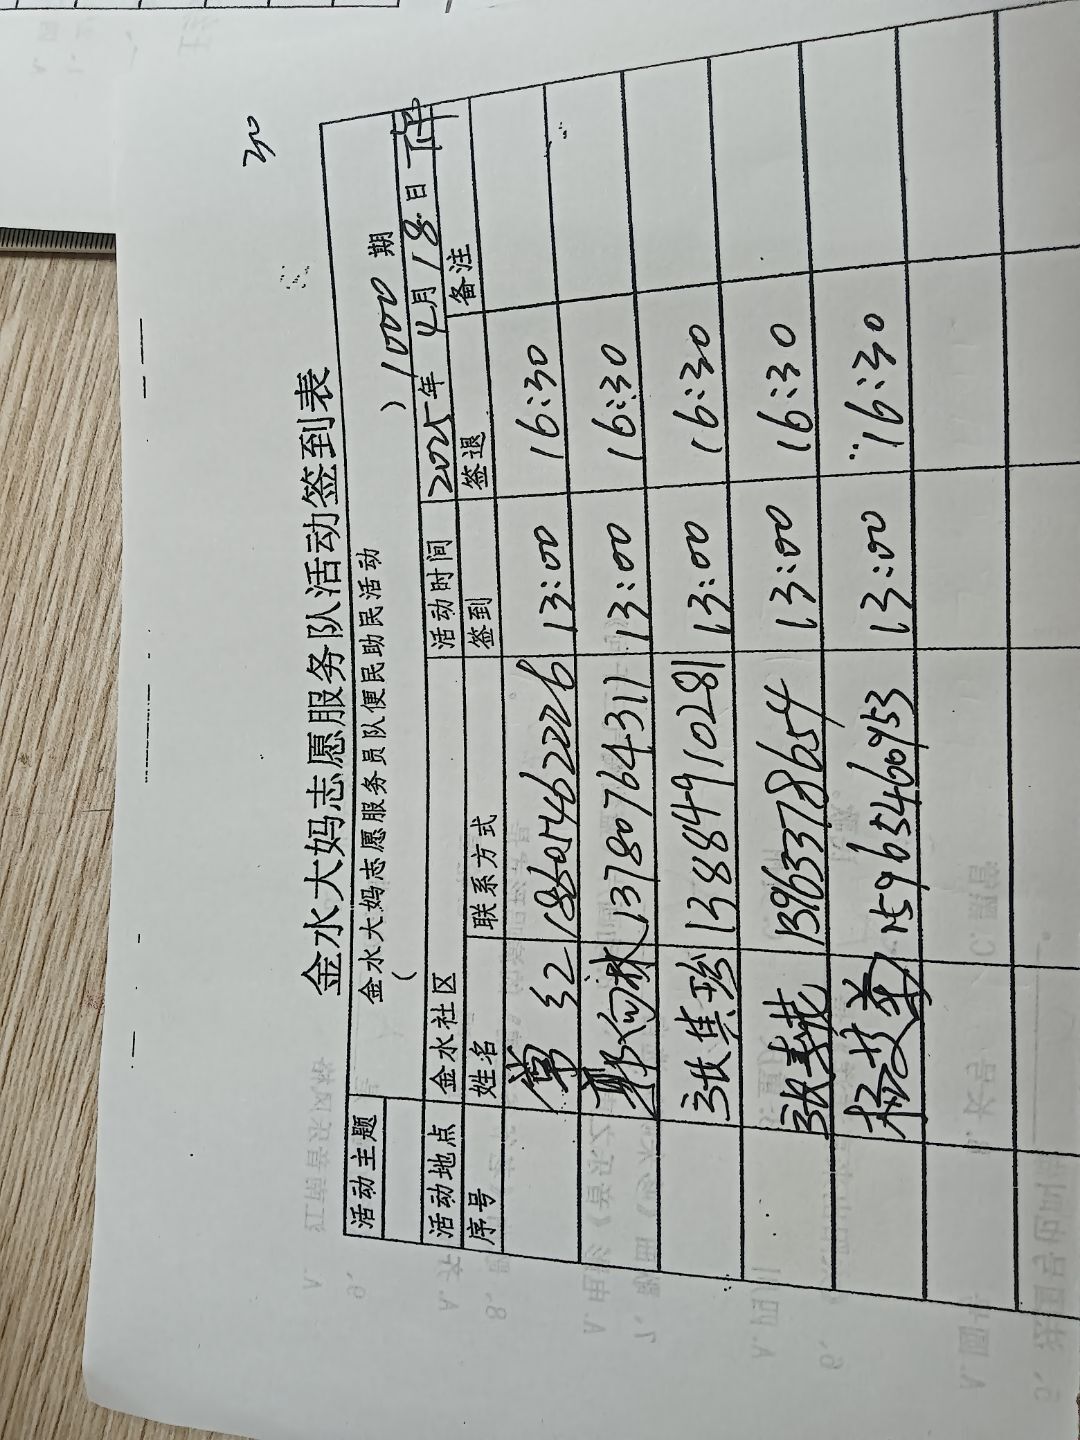 30
金水大妈志愿服务队活动签到表
活动主题 金水大妈志愿服务员队便民助民活动
( ) 1000 期
活动地点 金水社区 活动时间 2025年 4月 18日 下午
序号 姓名 联系方式 签到 签退 备注
常红 13:00 16:30
郭向林 13780764311 13:00 16:30
张其珍 13884910281 13:00 16:30
张春花 13963378654 13:00 16:30
杨芝草 15965460953 13:00 16:30